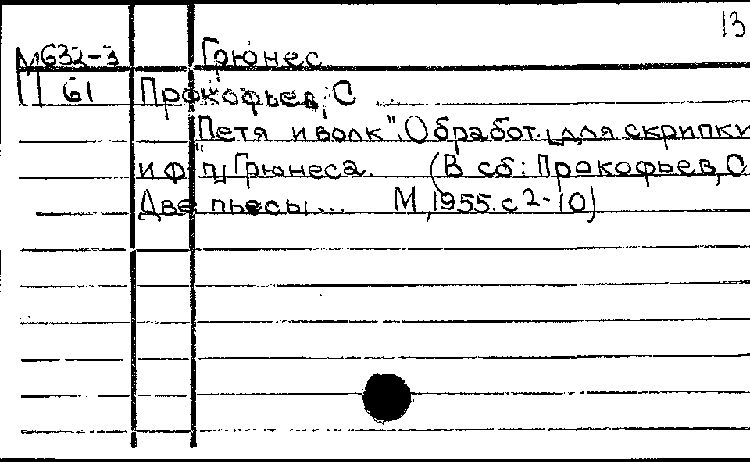 13
М632-3 Грюнес
П 61 Прокофьев, С
"Петя и волк". Обработ. для скрипки
и ф-п. Грюнеса. (В сб: Прокофьев, С
Две пьесы... М, 1955. с 2-10)